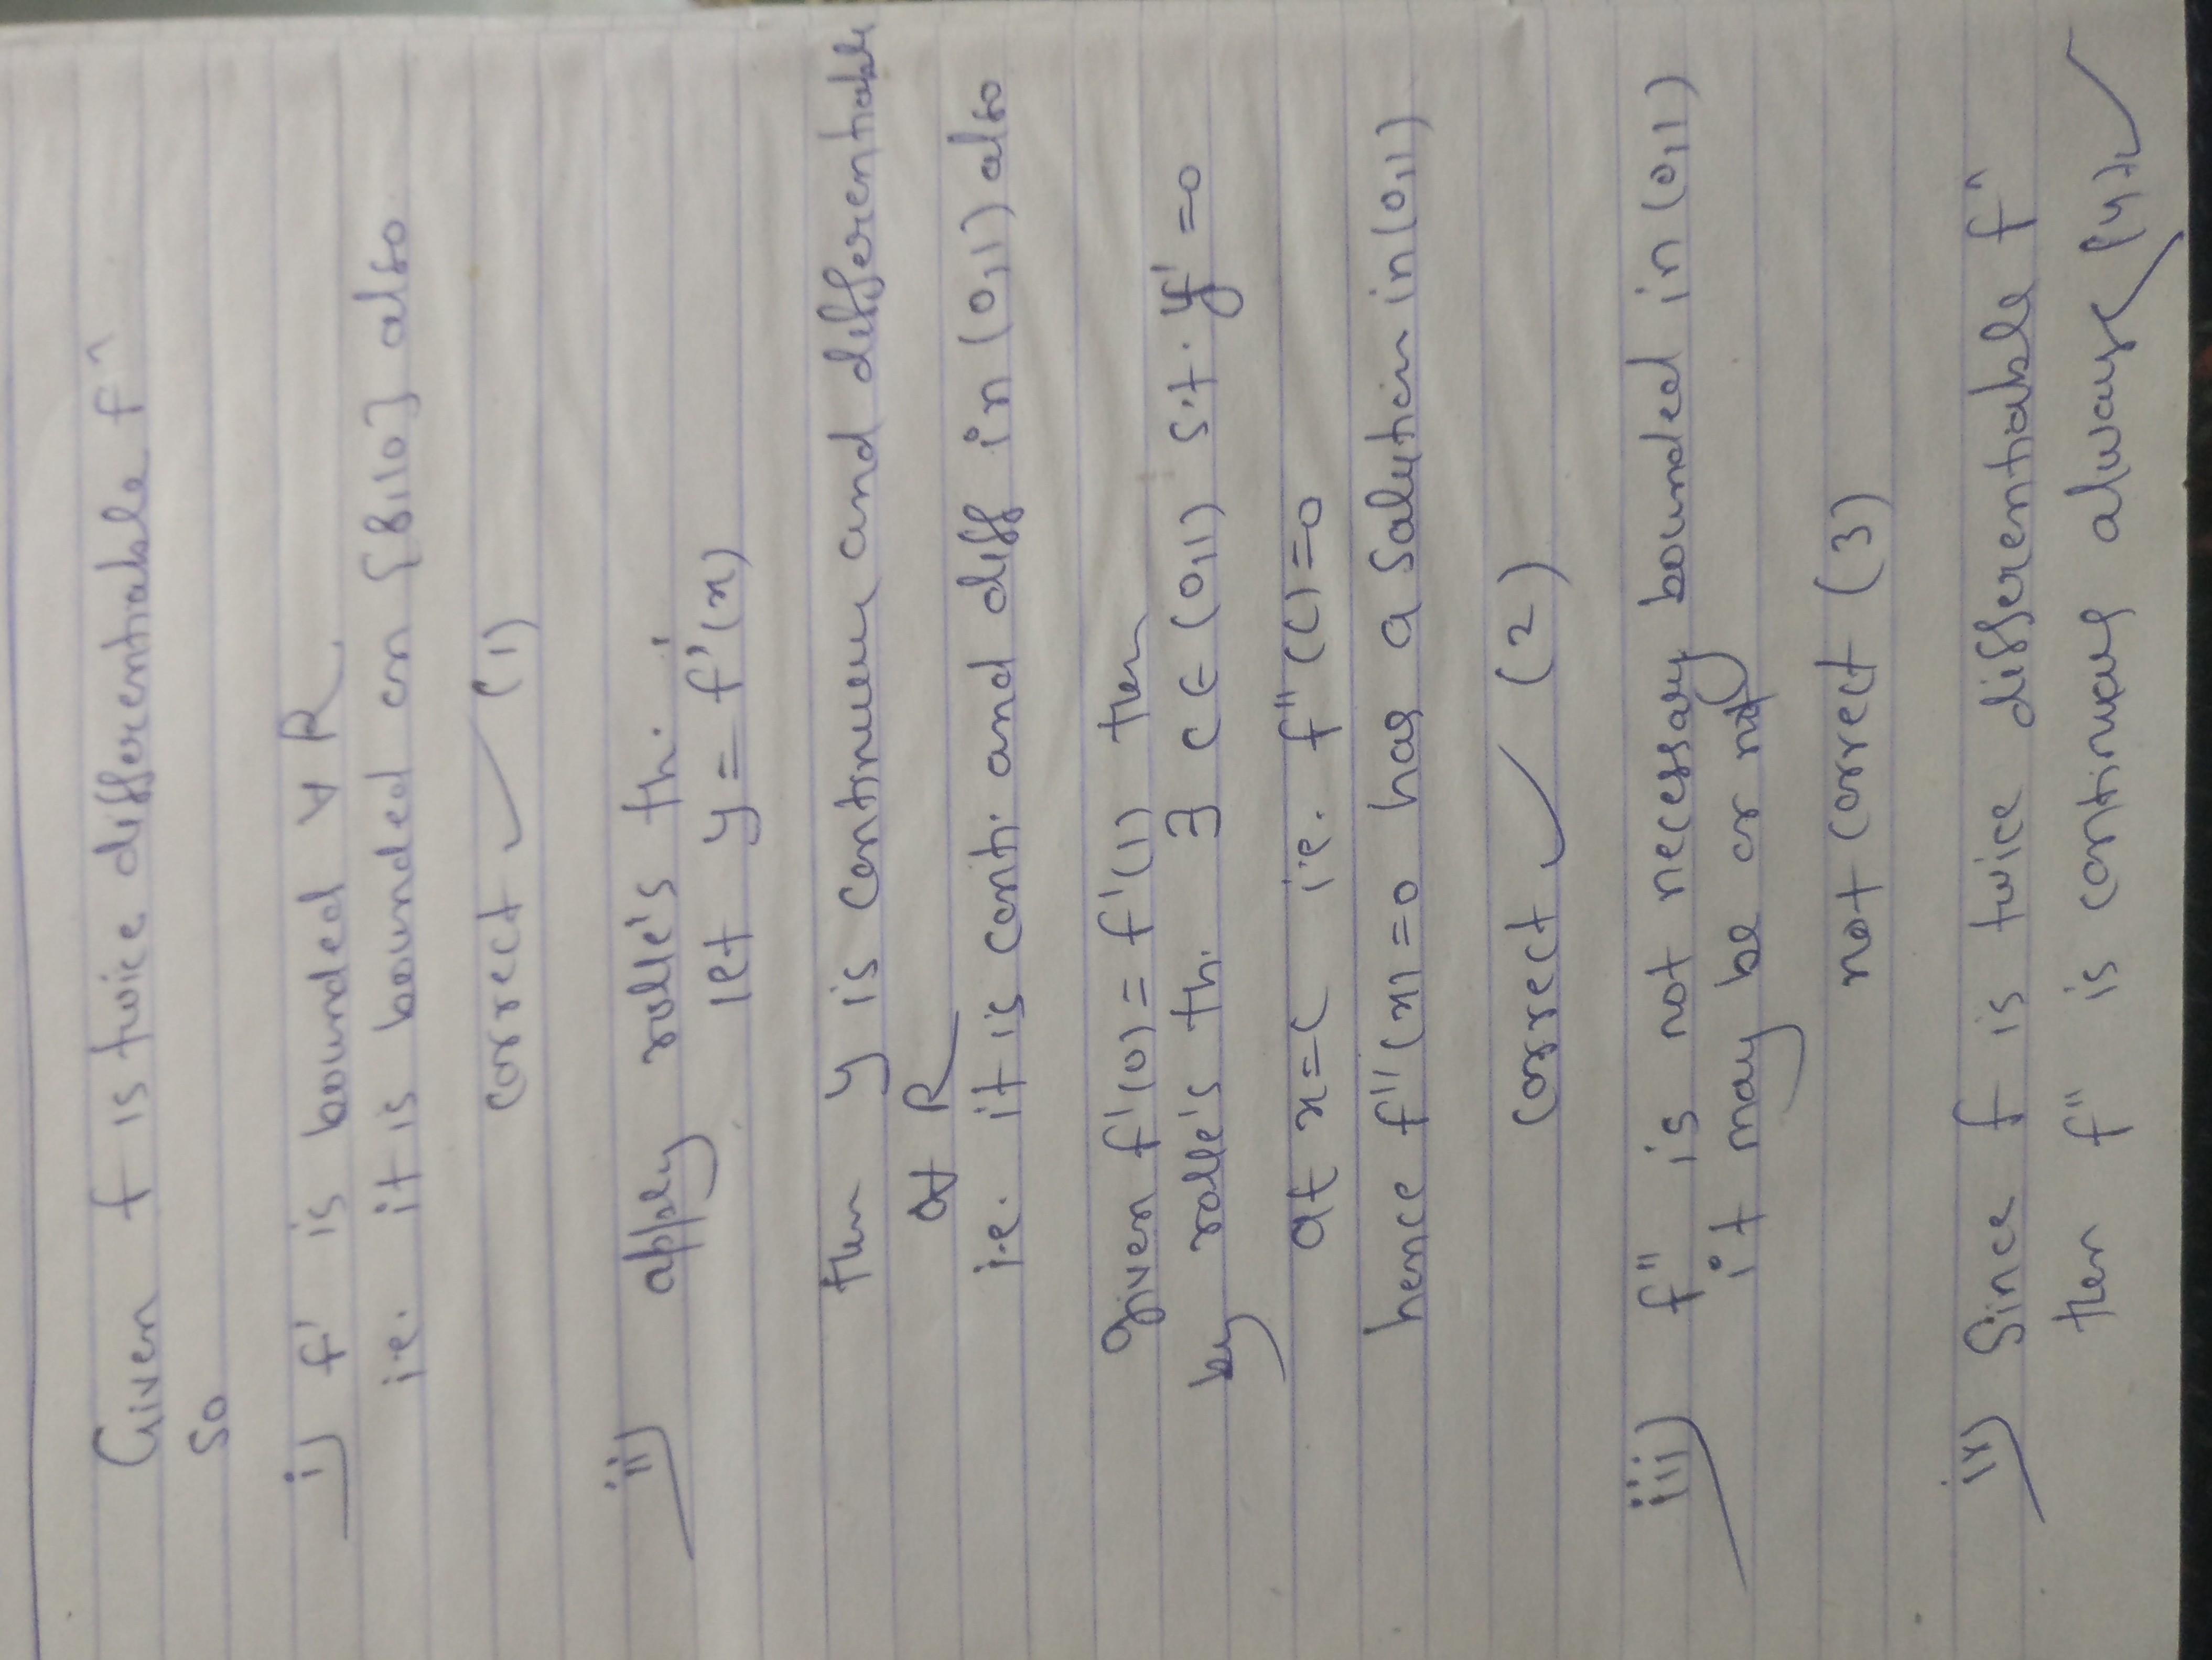 Given f is twice differentiable f^n
so
i) f' is bounded ∀ R
i.e. it is bounded on [8,10] also.
correct ✓ (1)
ii) apply rolle's th.
let y = f'(x)
then y is continuous and differentiable
at R
i.e. it is conti. and diff in (0,1) also
given f'(0) = f'(1) then
by rolle's th. ∃ c ∈ (0,1) s.t. y' = 0
at x = c i.e. f''(c) = 0
hence f''(x) = 0 has a solution in (0,1)
correct ✓ (2)
iii) f'' is not necessary bounded in (0,1)
it may be or not
not correct (3)
iv) Since f is twice differentiable f^n
then f'' is continuous always (4) ✓